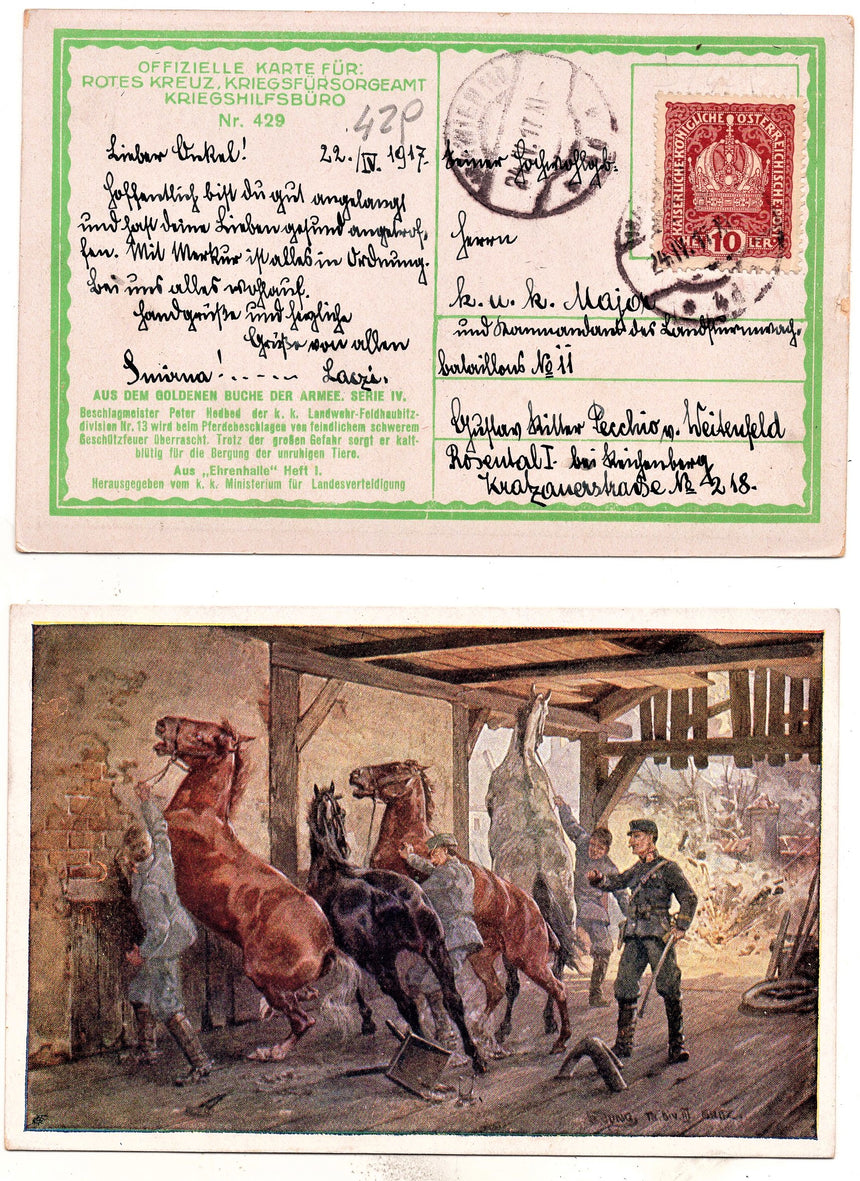 OFFIZIELLE KARTE FÜR:
ROTES KREUZ, KRIEGSFÜRSORGEAMT
KRIEGSHILFSBÜRO
Nr. 429
429
Lieber Onkel! 22./IV. 1917.
Hoffentlich bist du gut angelangt
und hast deine Lieben gesund angetrof-
fen. Mit Merkur ist alles in Ordnung.
Bei uns alles wohlauf.
Handgrüße und herzliche
Grüße von allen
Laczi.
AUS DEM GOLDENEN BUCHE DER ARMEE. SERIE IV.
Beschlagmeister Peter Hedbed der k. k. Landwehr-Feldhaubitz-
division Nr. 13 wird beim Pferdebeschlagen von feindlichem schwerem
Geschützfeuer überrascht. Trotz der großen Gefahr sorgt er kalt-
blütig für die Bergung der unruhigen Tiere.
Aus „Ehrenhalle" Heft I.
Herausgegeben vom k. k. Ministerium für Landesverteidigung
KAISERLICHE KÖNIGLICHE ÖSTERREICHISCHE POST
10
24.IV.17
24.IV.17
Seiner Hochwohlgb.
Herrn
k. u. k. Major
und Kommandant des Landsturmwach-
bataillons No 11
Gustav Ritter Pecchio v. Weitenfeld
Rosental I. bei Reichenberg
Kratzauerstrasse No 218.
JUNG,